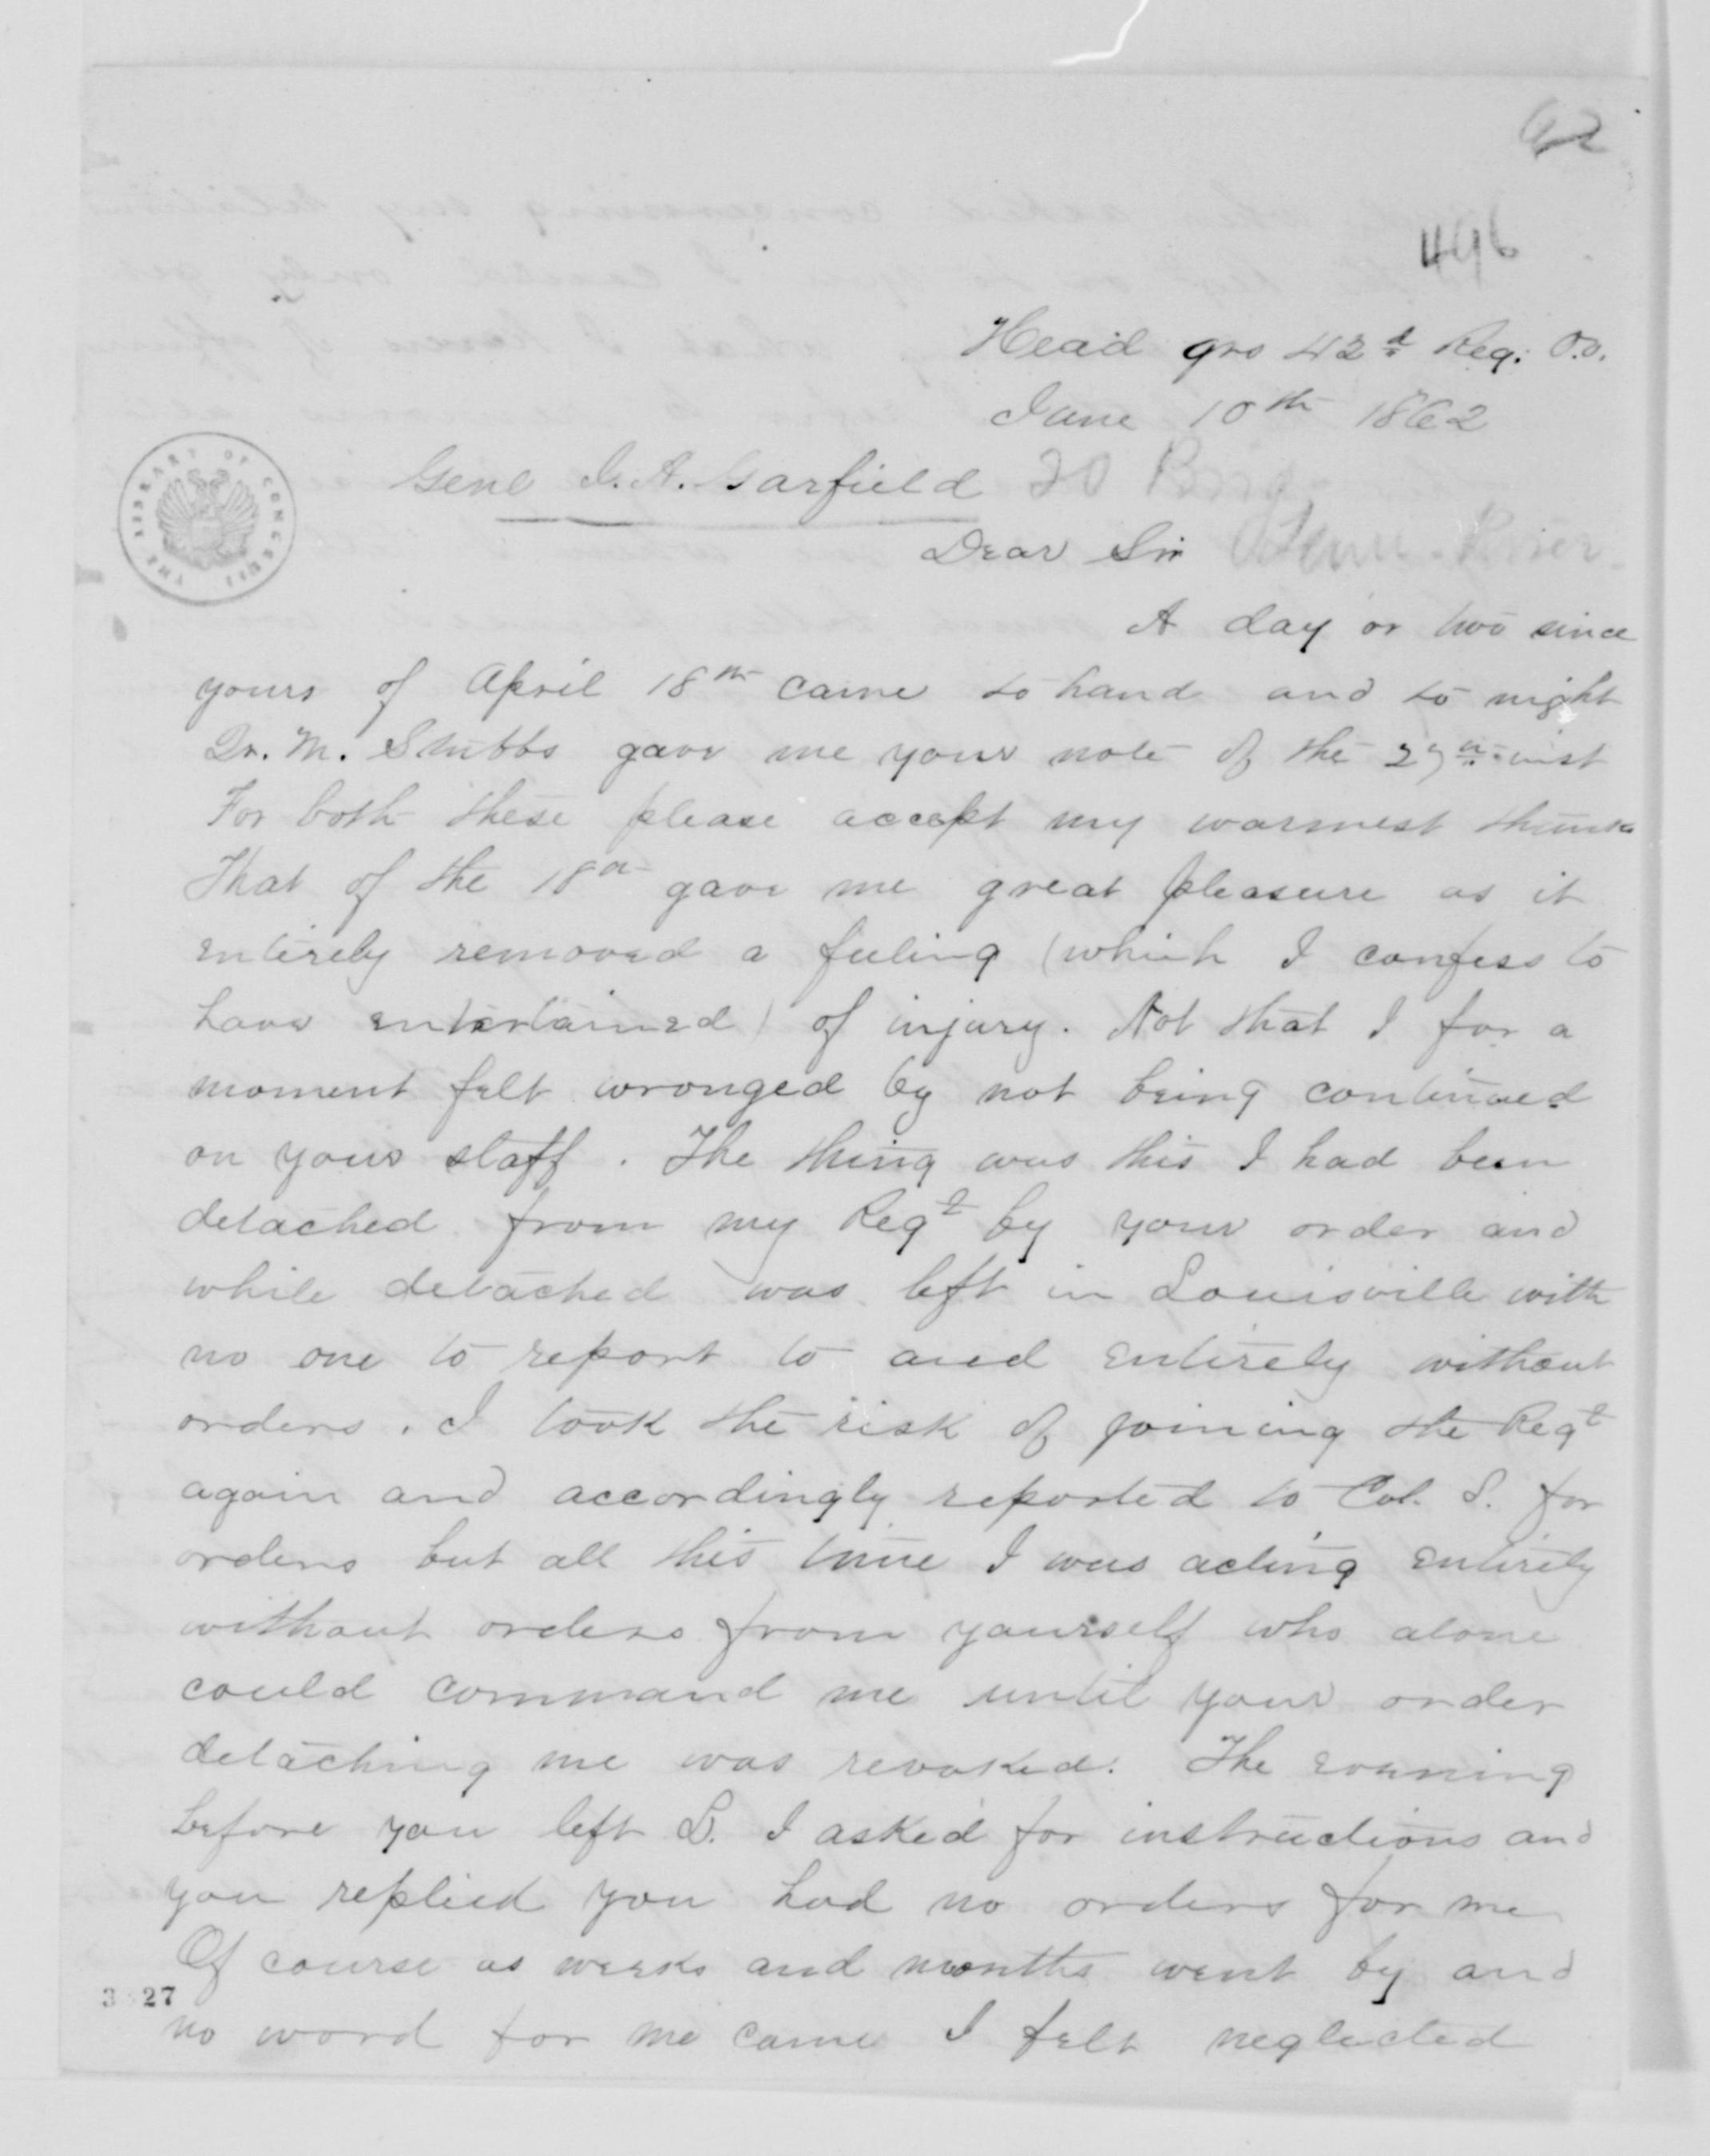 62
496
Head qrs 42d Reg. O.V.
June 10th 1862
Genl J. A. Garfield 20 Brig.
Dear Sir Tenn. River
THE LIBRARY OF CONGRESS
A day or two since
yours of April 18th came to hand and to night
Dr. M. Stubbs gave me your note of the 27th inst
For both these please accept my warmest thanks
That of the 18th gave me great pleasure as it
entirely removed a feeling (which I confess to
have entertained) of injury. Not that I for a
moment felt wronged by not being continued
on your staff. The thing was this I had been
detached from my Regt by your order and
while detached was left in Louisville with
no one to report to and entirely without
orders. I took the risk of joining the Regt
again and accordingly reported to Col. S. for
orders but all this time I was acting entirely
without orders from yourself who alone
could command me until your order
detaching me was revoked. The evening
before you left L. I asked for instructions and
you replied you had no orders for me
Of course as weeks and months went by and
3 27
no word for me came I felt neglected